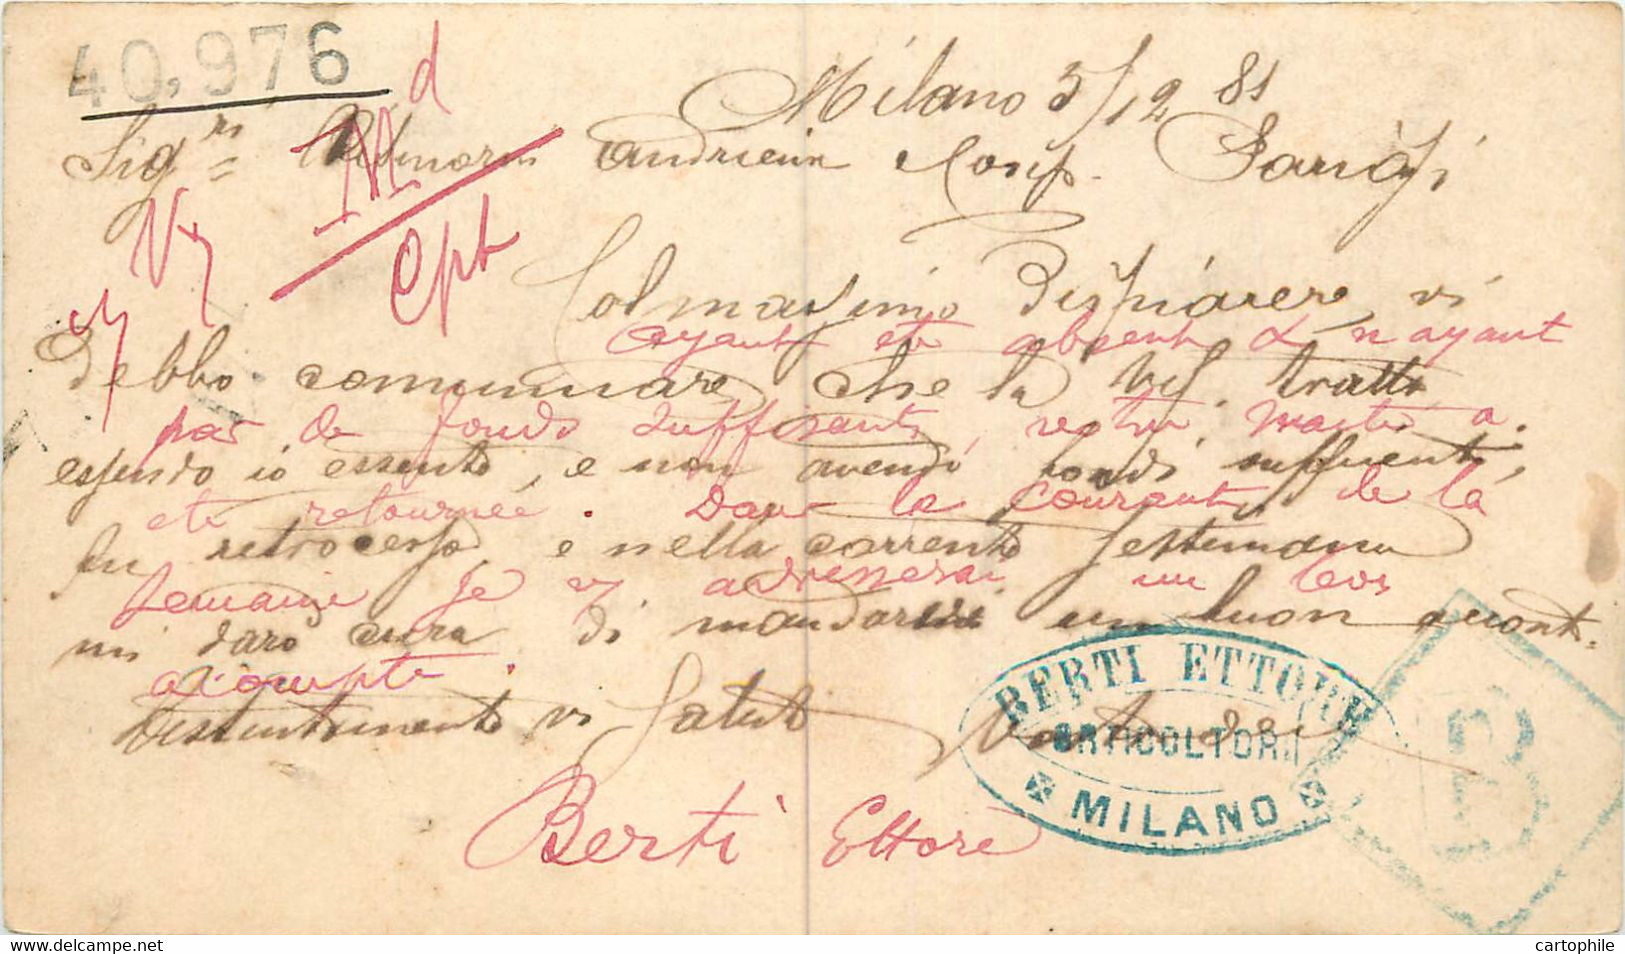 40,976
Milano 5/12 81
Sigri = Vilmorin Andrieux Comp. Parigi
Md
Cpt
Vy
Col massimo dispiacere, vi
ayant eté absent & n'ayant
debbo comunicare che la vos. tratta
pas de fonds suffisants, votre traite a
essendo io assente, e non avendo fondi sufficienti,
eté retournée. Dans le courant de la
fu retrocessa, e nella corrente settimana
semaine je vs adresserai un bon
mi daro cura di mandarvi un buon acconto.
acompte.
Distintamente vi saluto
BERTI ETTORE
ORTICOLTORE
MILANO
Berti Ettore
cartophile